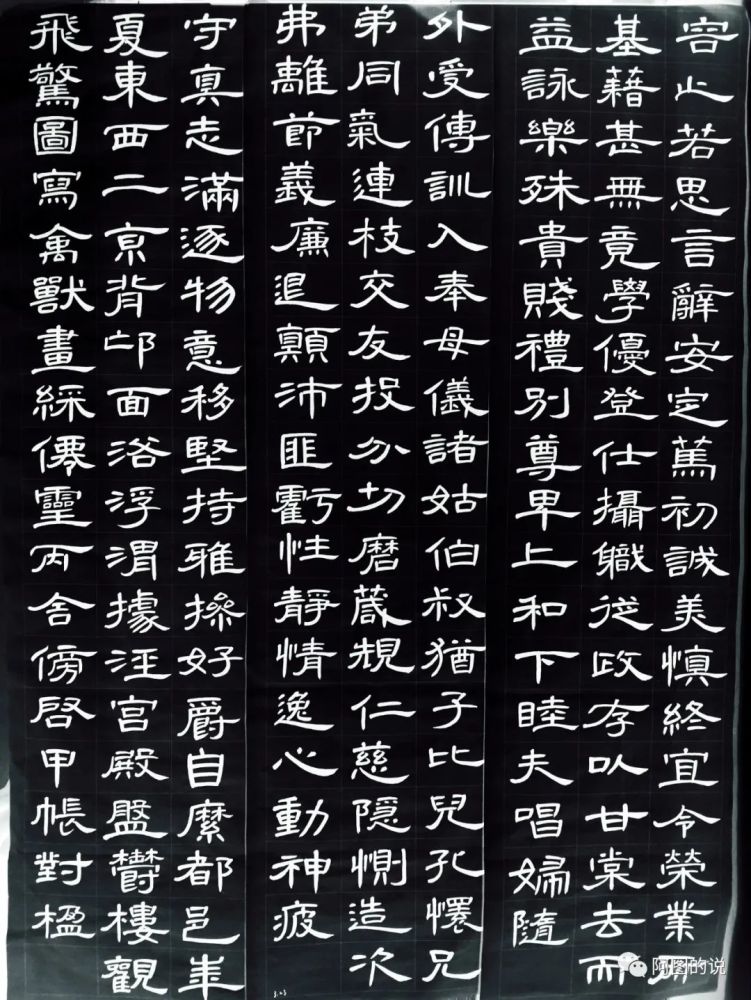 容止若思言辭安定篤初誠美慎終宜令榮業所
基藉甚無竟學優登仕攝職從政存以甘棠去而
益詠樂殊貴賤禮別尊卑上和下睦夫唱婦隨
外受傅訓入奉母儀諸姑伯叔猶子比兒孔懷兄
弟同氣連枝交友投分切磨箴規仁慈隱惻造次
弗離節義廉退顛沛匪虧性靜情逸心動神疲
守真志滿逐物意移堅持雅操好爵自縻都邑華
夏東西二京背邙面洛浮渭據涇宮殿盤鬱樓觀
飛驚圖寫禽獸畫綵僊靈丙舍傍啓甲帳對楹
阿图的说